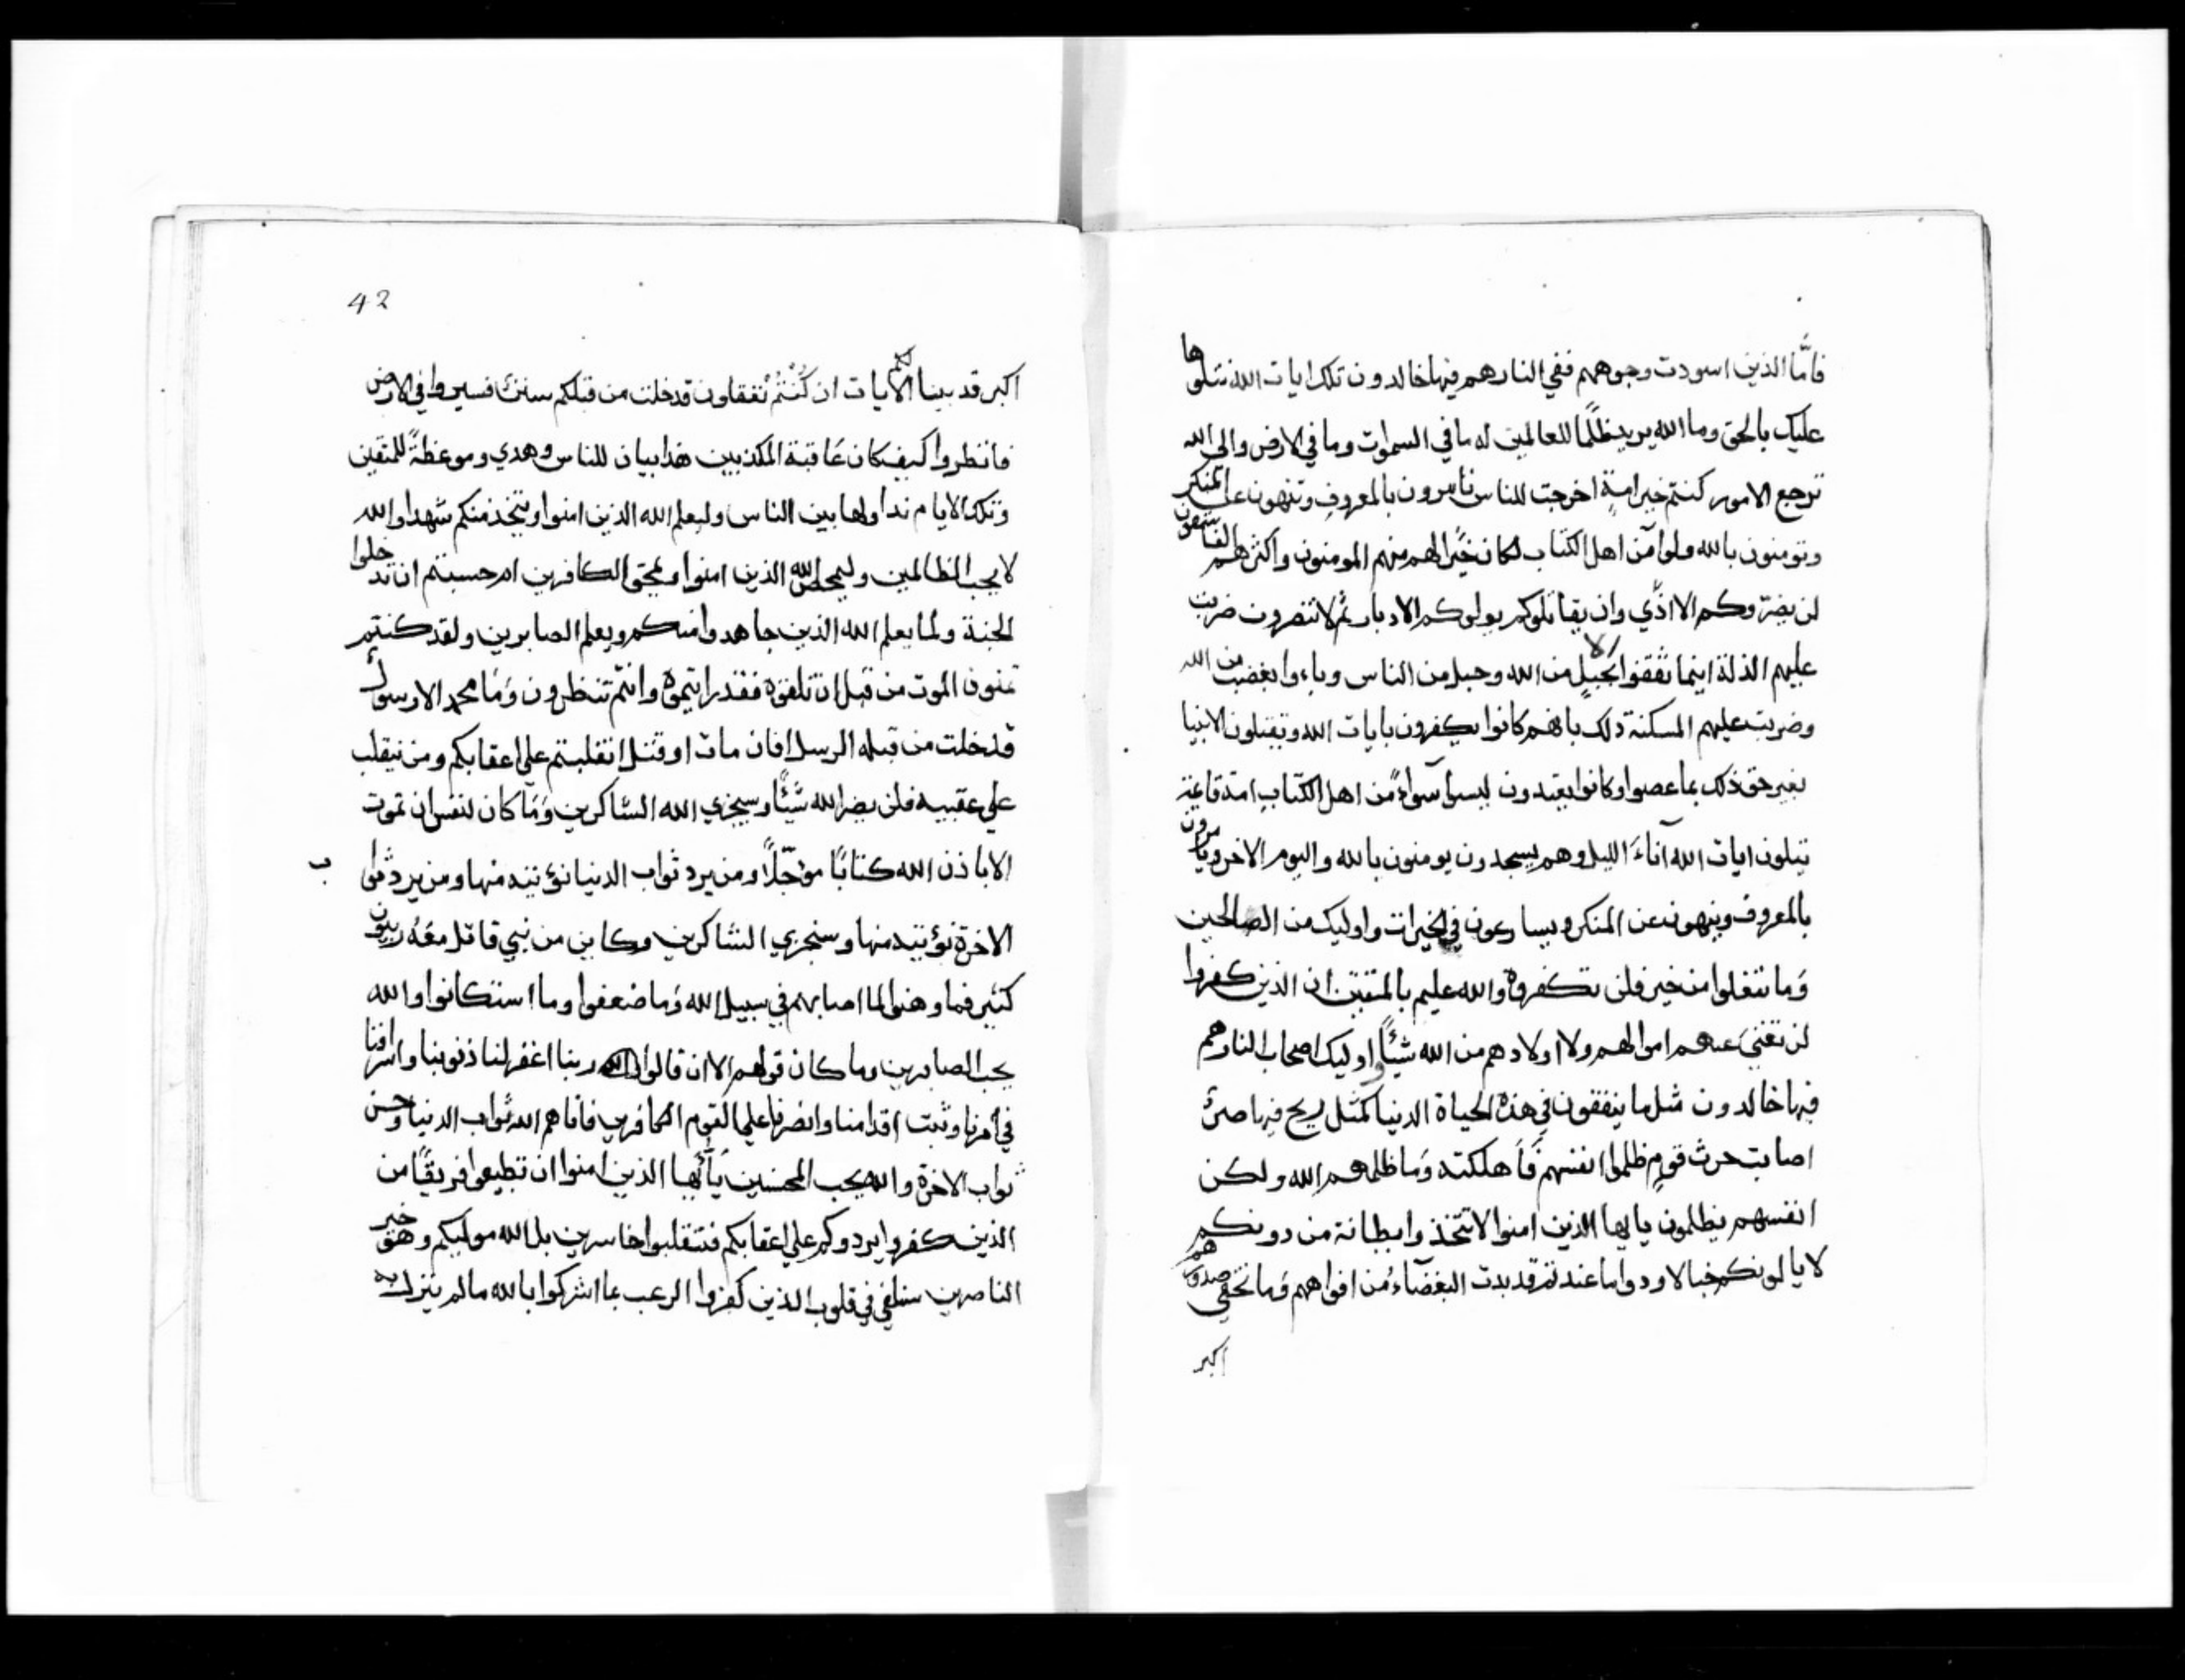 فامَّا الذين اسودت وجوههم ففي النار هم فيها خالدون تلك ايات الله نتلوها
عليك بالحق وما الله يريد ظلمًا للعالمين له ما في السموات وما في الارض والى الله
ترجع الامور كنتم خير امةٍ اخرجت للناس تامرون بالمعروف وتنهون عن المنكر
وتومنون بالله ولو آمن اهل الكتاب لكان خيرًا لهم منهم المومنون واكثرهم الفاسقون
لن يضرّوكم الا اذًي وان يقاتلوكم يولوكم الادبار ثم لا تنصرون ضربت
عليهم الذلة اينما ثقفوا الا بحبلٍ من الله وحبل من الناس وباءوا بغضب من الله
وضربت عليهم المسكنة ذلك بانهم كانوا يكفرون بايات الله ويقتلون الانبيا
بغير حق ذلك بما عصوا وكانوا يعتدون ليسوا سواءً من اهل الكتاب امة قائمة
يتلون ايات الله آناءَ الليل وهم يسجدون يومنون بالله واليوم الاخر ويامرون
بالمعروف وينهون عن المنكر ويسارعون في الخيرات واوليك من الصالحين
وَما تفعلوا من خير فلن تكفروه والله عليم بالمتقين ان الذين كفروا
لن تغنيَ عنهم اموالهم ولا اولادهم من الله شيئًا واوليك اصحاب النار هم
فيها خالدون مثل ما ينفقون في هذه الحياة الدنيا كمثل ريح فيها صرٌ
اصابت حرث قومٍ ظلموا انفسهم فَاَهلكته وَما ظلمهم الله ولكن
انفسهم يظلمون يا يها الذين امنوا لا تتخذوا بطانة من دونكم
لا يالونكم خبالا ودوا ما عنتم قد بدت البغضآء من افواههم وَما تخفي صدورهم
اكبر
42
اكبر قد بينا لكم الايات ان كُنْتُمْ تعقلون قد خلت من قبلكم سننٌ فسيروا في الارض
فانظروا كيف كان عَاقبة المكذبين هذا بيان للناس وهدي وموعظةً للمتقين
وتلك الايام نداولها بين الناس وليعلم الله الذين امنوا ويتخذ منكم شهدا والله
لا يحب الظالمين وليمحص الله الذين امنوا ويمحق الكافرين ام حسبتم ان تدخلوا
الجنة ولما يعلم الله الذين جاهدوا منكم ويعلم الصابرين ولقد كنتم
تمنون الموت من قبل ان تلقوه فقد رايتموه وانتم تنظرون وَمَا محمد الا رسولٌ
قد خلت من قبله الرسل افان مات او قتل انقلبتم علي اعقابكم ومن ينقلب
علي عقبيه فلن يضر الله شيئًا وسيجزي الله الشاكرين وَمَا كان لنفس ان تموت
الا باذن الله كتابًا مؤجّلاً ومن يرد ثواب الدنيا نؤتيه منها ومن يرد ثوا ب
الاخرة نؤتيه منها وسنجزي الشاكرين وكاين من نبي قاتل معَهُ ربيون
كثير فما وهنوا لما اصابهم في سبيل الله وَما ضعفوا وما استكانوا والله
يحب الصابرين وما كان قولهم الا ان قالوا ربنا اغفر لنا ذنوبنا واسرافنا
في امرنا وثبت اقدامنا وانصرنا علي القوم الكافرين فاتاهم الله ثواب الدنيا وحسن
ثواب الاخرة والله يحب المحسنين يَآ اَيُّها الذين امنوا ان تطيعوا فريقًا من
الذين كفروا يردوكم علي اعقابكم فتنقلبوا خاسرين بل الله موليكم وهو خير
الناصرين سنلقي في قلوب الذين كفروا الرعب بما اشركوا بالله ما لم ينزل به